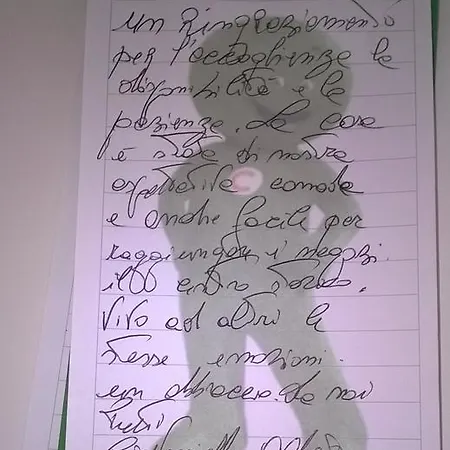 un ringraziamento
per l'accoglienza la
disponibilità e la
pazienza. La casa
è stata di nostra
aspettativa comoda
e anche facile per
raggiungere i negozi.
il centro storico.
Vivo ad altri le
stesse emozioni.
un abbraccio da noi
tutti